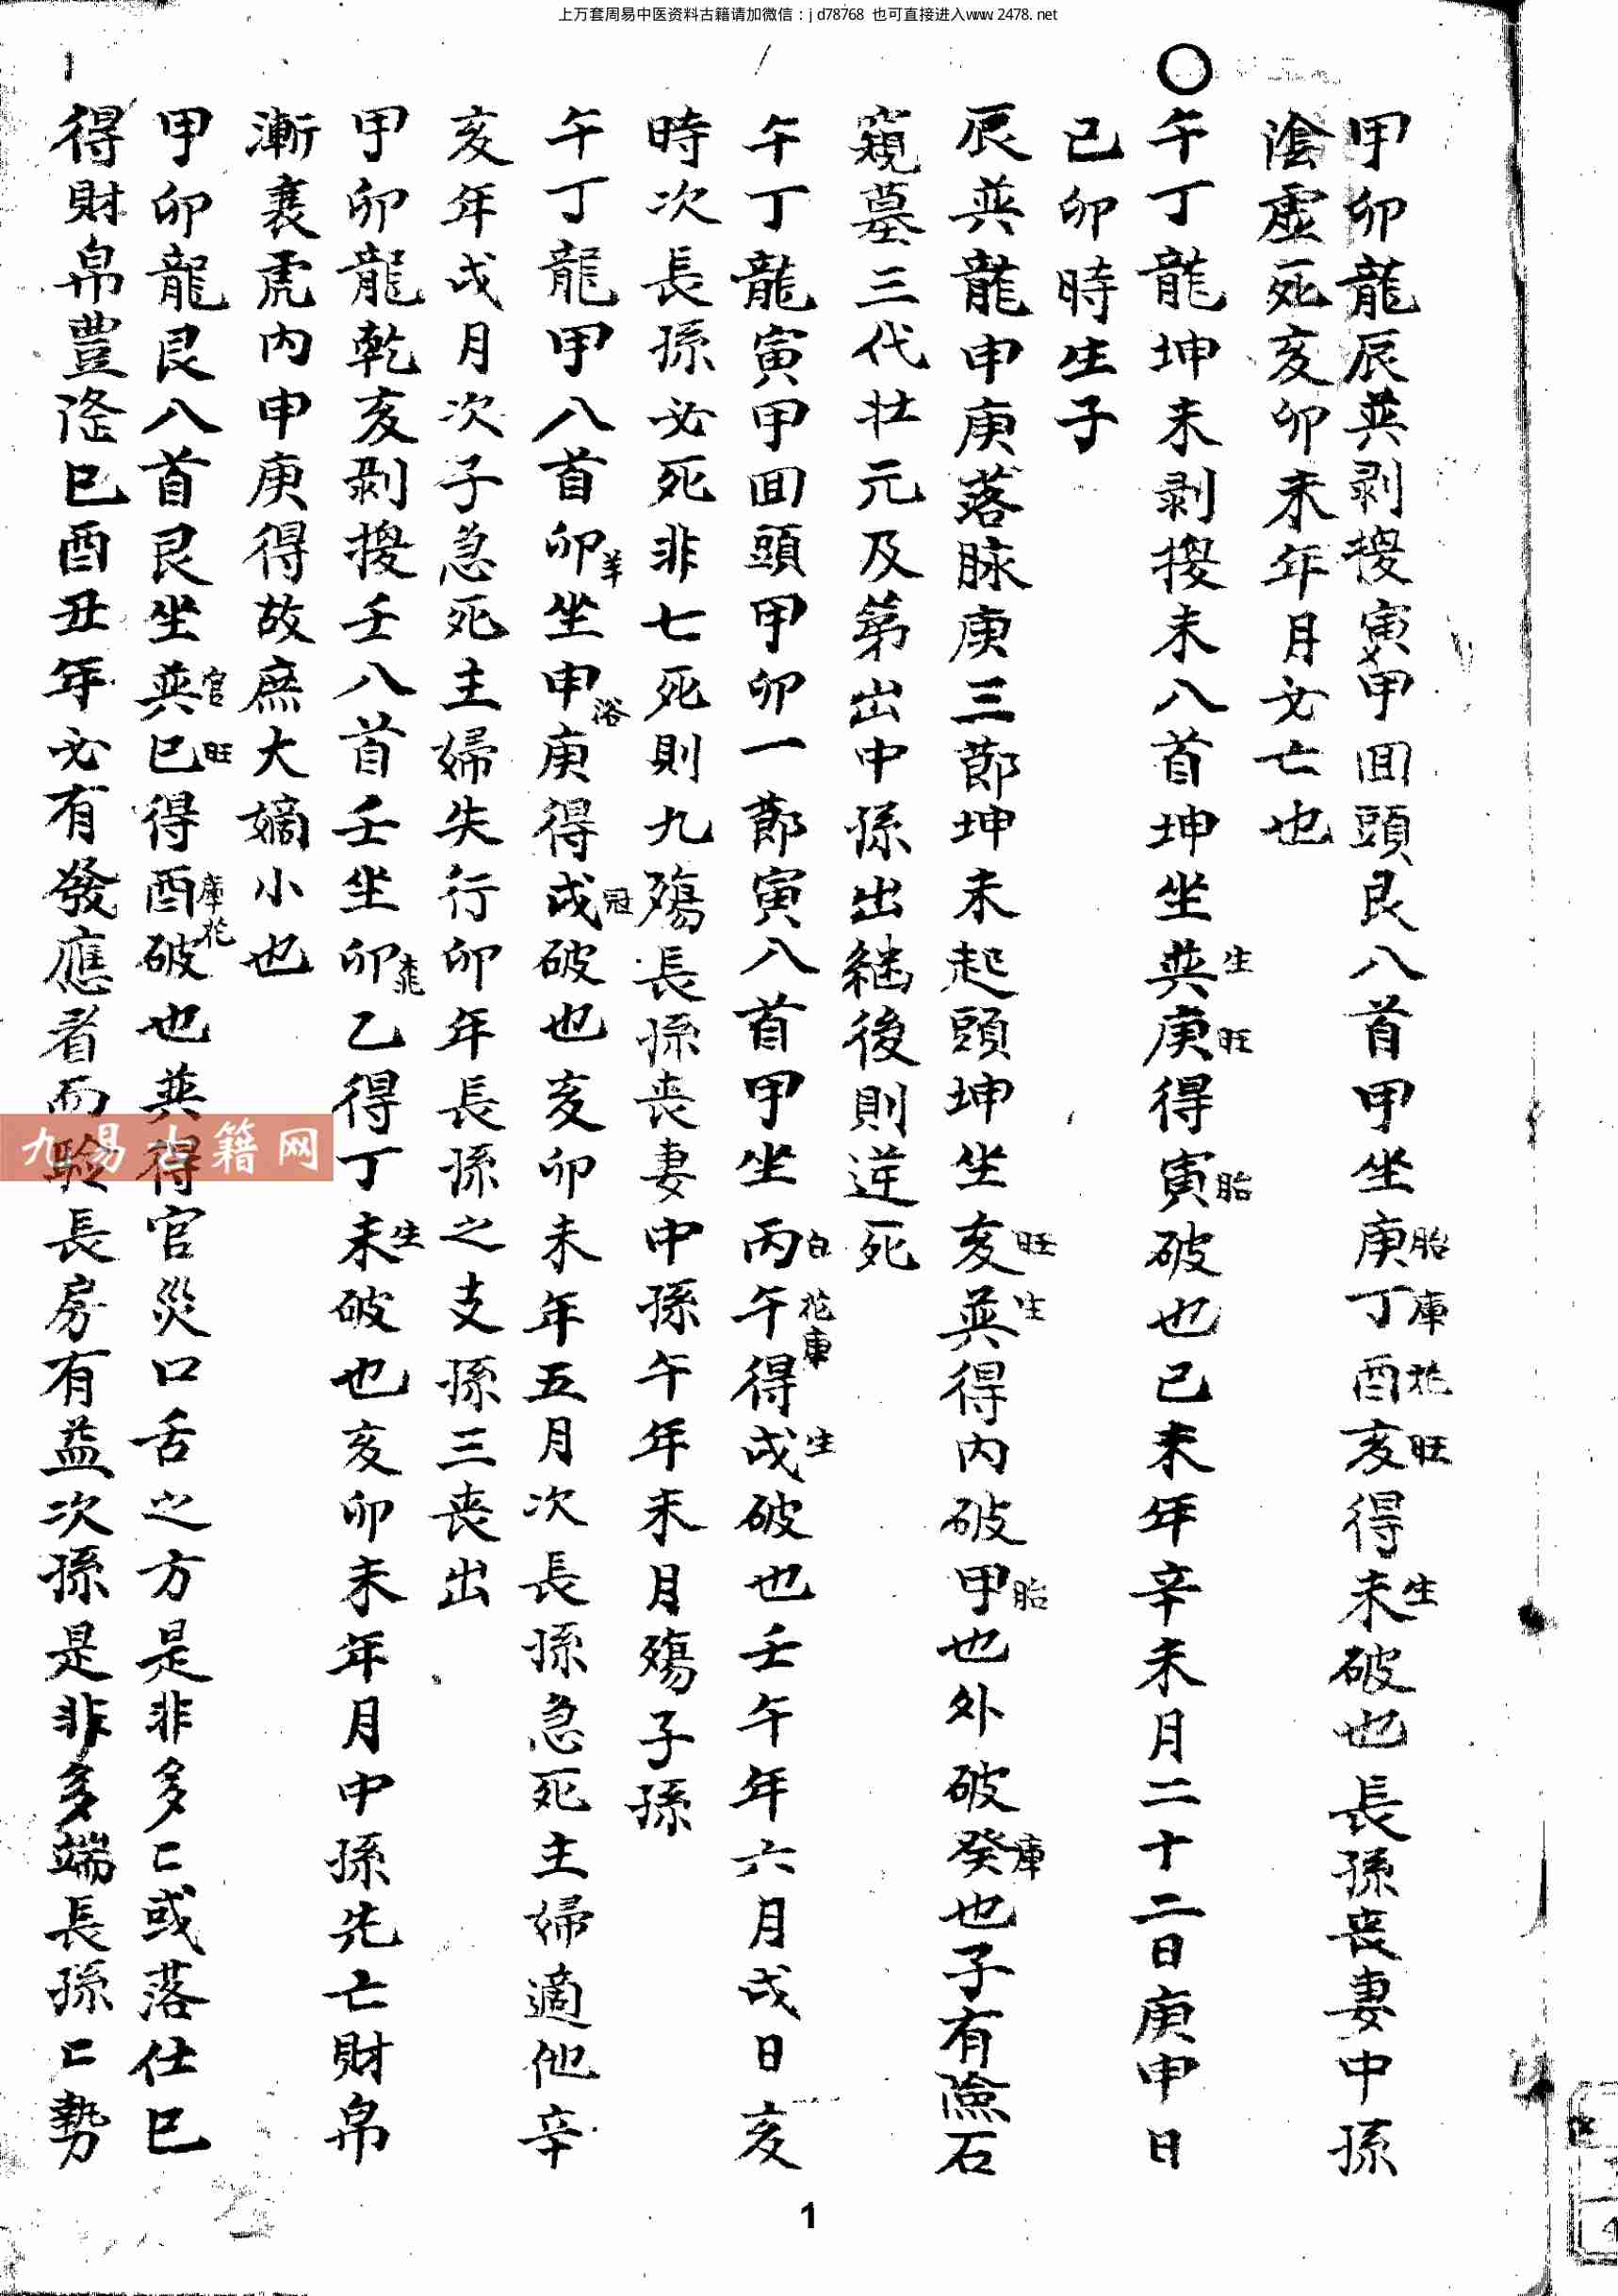 上万套周易中医资料古籍请加微信：jd78768 也可直接进入www.2478.net
甲卯龍辰巽剥換寅甲回頭艮八首甲坐庚胎丁庫酉花亥旺得未生破也長孫喪妻中孫
陰虛死亥卯未年月必亡也
○午丁龍坤未剥換未八首坤坐巽生庚旺得寅胎破也己未年辛未月二十二日庚申日
己卯時生子
辰巽龍申庚落脉庚三節坤未起頭坤坐亥旺巽生得内破甲胎也外破癸庫也子有險石
窺墓三代壮元及第出中孫出継後則逆死
午丁龍寅甲回頭甲卯一節寅八首甲坐丙白午花東得戌生破也壬午年六月戌日亥
時次長孫必死非七死則九殤長孫喪妻中孫午年未月殤子孫
午丁龍甲八首卯羊坐申浴庚得戌冠破也亥卯未年五月次長孫急死主婦適他辛
亥年戌月次子急死主婦失行卯年長孫之支孫三喪出
甲卯龍乾亥剥換壬八首壬坐卯乙得丁未生破也亥卯未年月中孫先亡財帛
漸衰虎内申庚得故庶大嫡小也
甲卯龍艮八首艮坐巽官巳旺得酉庫花破也巽得官災口舌之方是非多匕或落仕巳
得財帛豊隆巳酉丑年必有發應者而 長房有益次孫是非多端長孫匕勢
九易古籍网
1